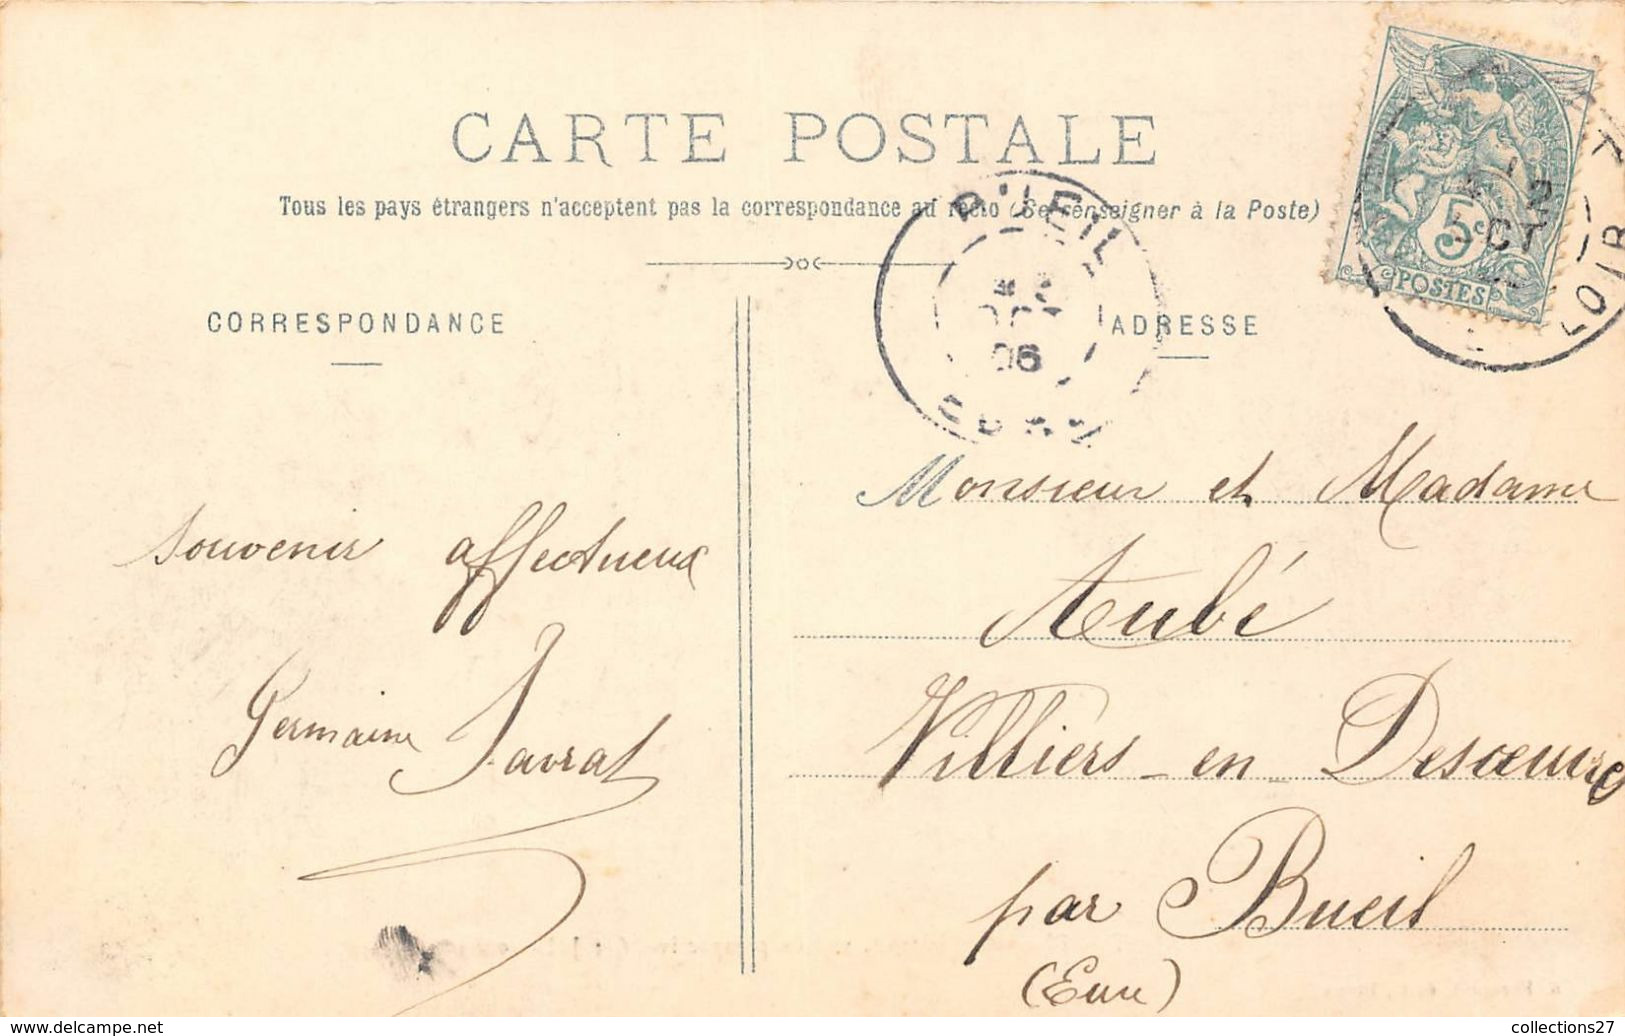 CARTE POSTALE
Tous les pays étrangers n'acceptent pas la correspondance au recto (Se renseigner à la Poste)
CORRESPONDANCE
souvenir affectueux
Germaine Favrat
ADRESSE
BUEIL
OCT
06
EURE
5c
POSTES
OCT
LOIR
Monsieur et Madame
Aubé
Villiers-en-Desœuvre
par Bueil
(Eure)
collections27